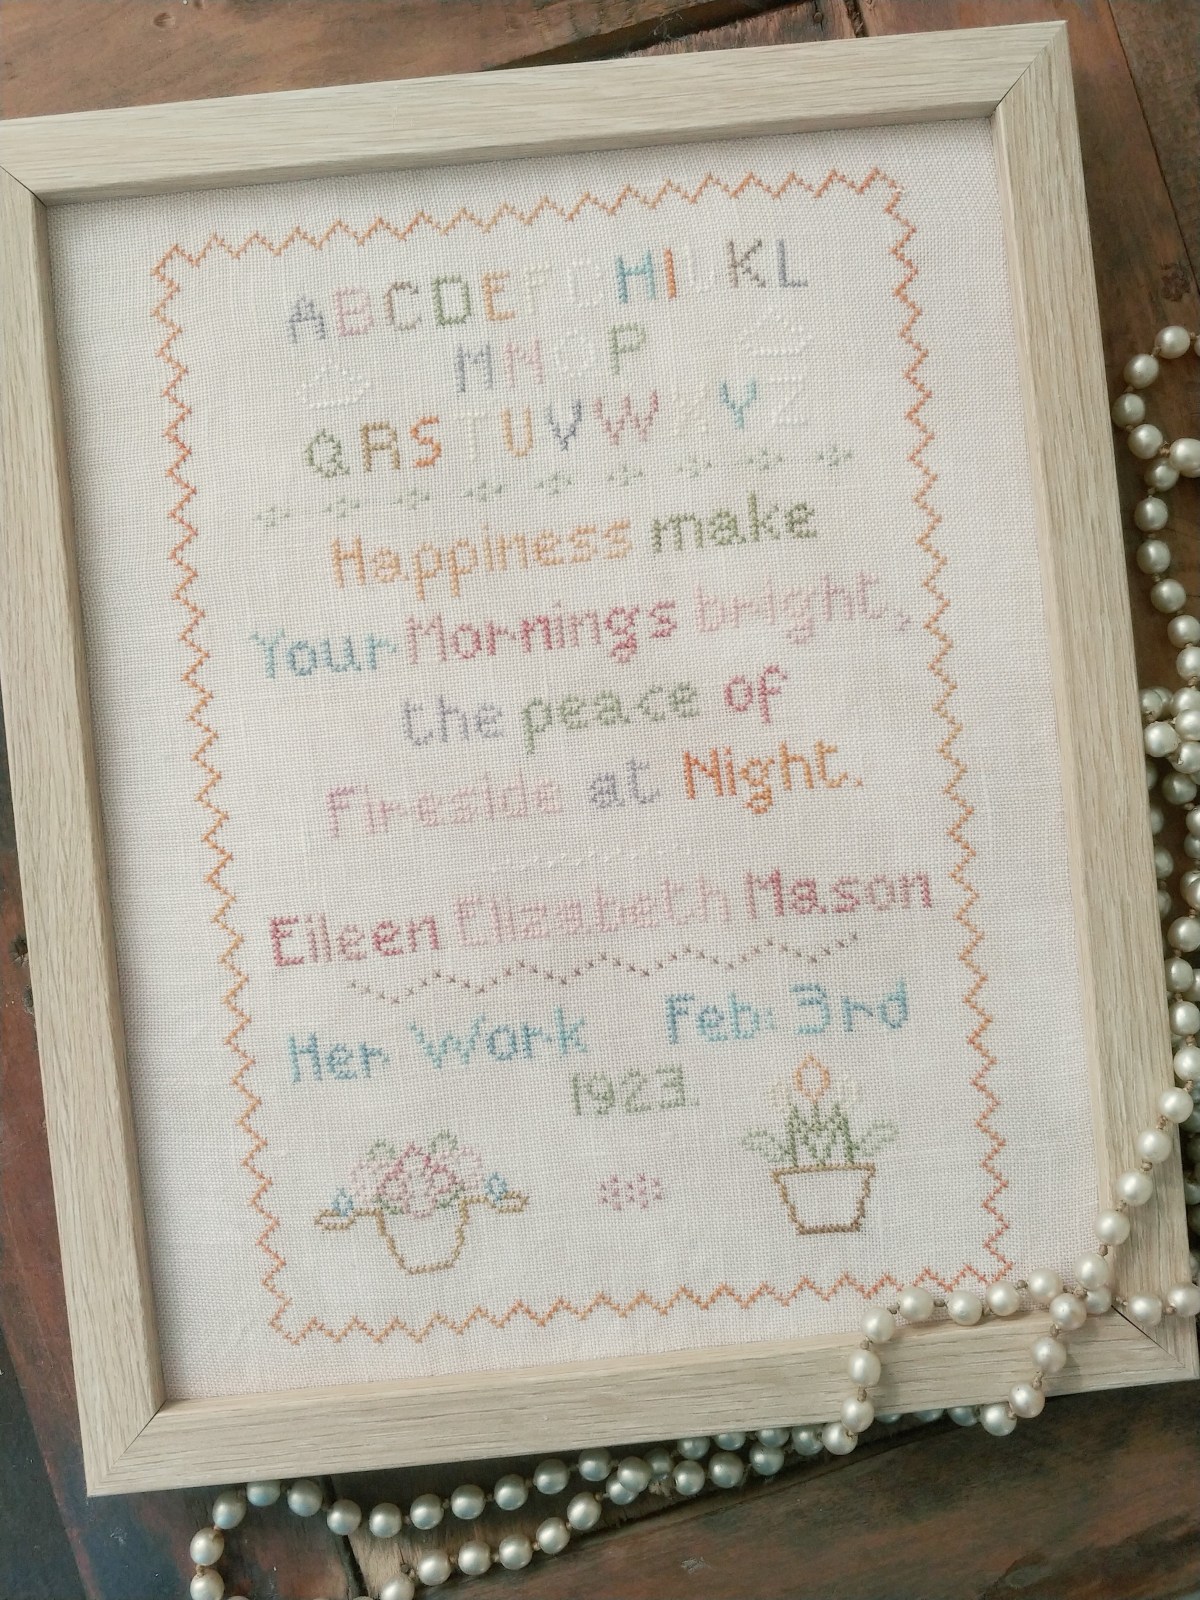 ABCDEFGHIJKL
MNOP
QRSTUVWXYZ
Happiness make
Your Mornings bright,
the peace of
Fireside at Night.
Eileen Elizabeth Mason
Her Work Feb: 3rd
1923.